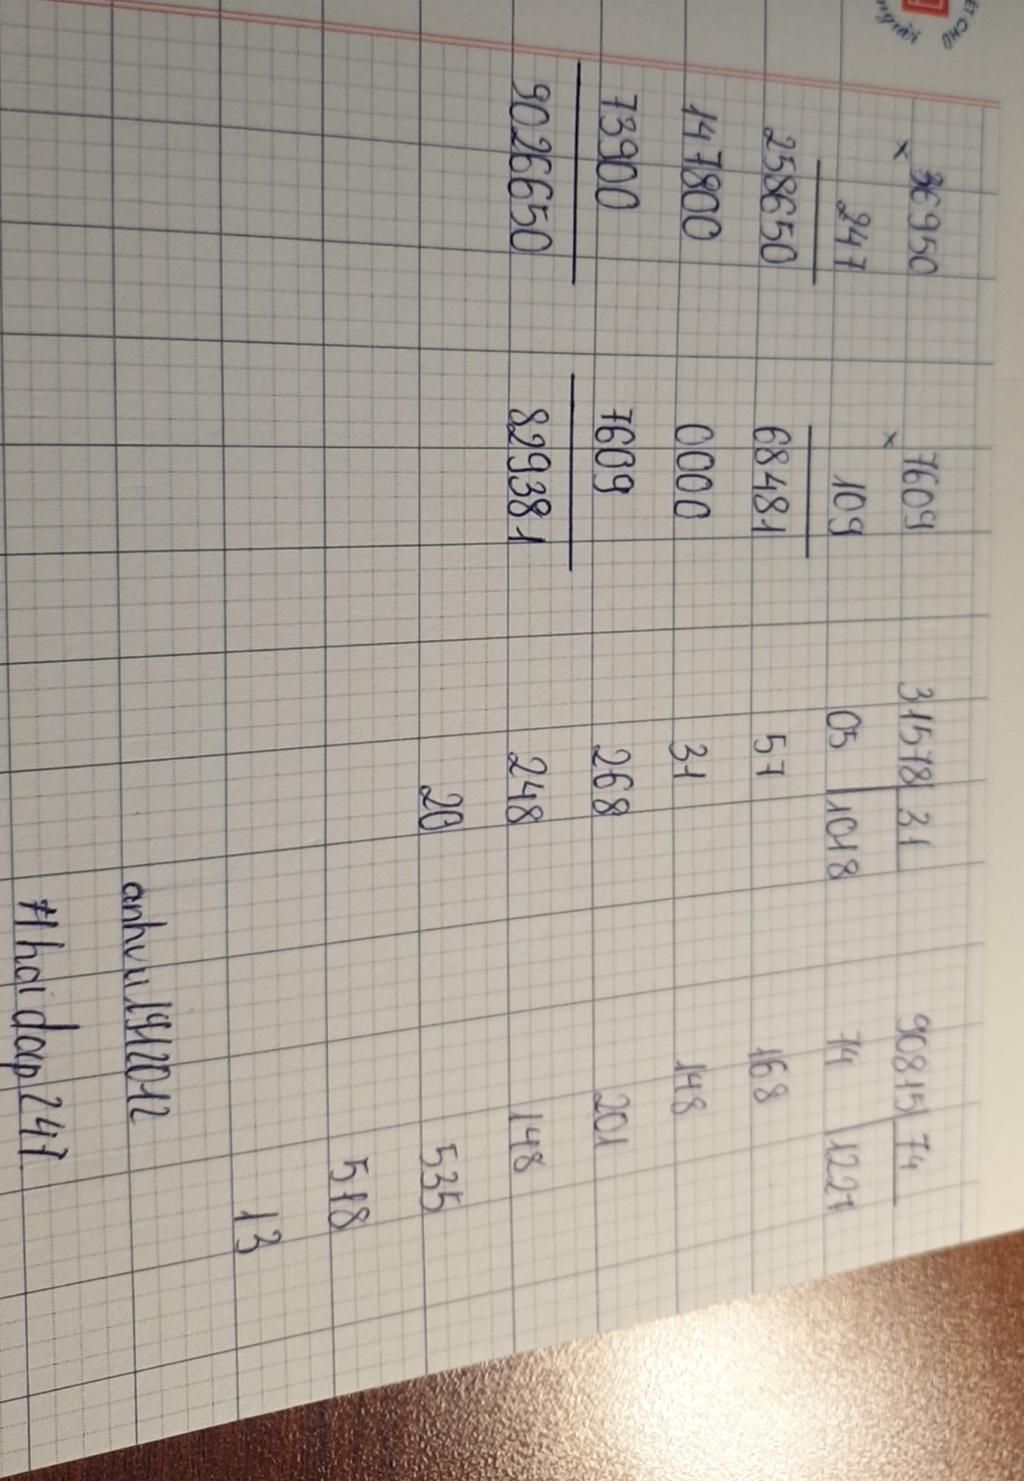 ẾT CHỮ
người
× 36950
247
258650
147800
73900
9026650
× 7609
109
68481
0000
7609
829381
31578 31
05 1018
57
31
268
248
20
90815 74
74 1227
168
148
201
148
535
518
13
anhvu1912012
#hoidap247